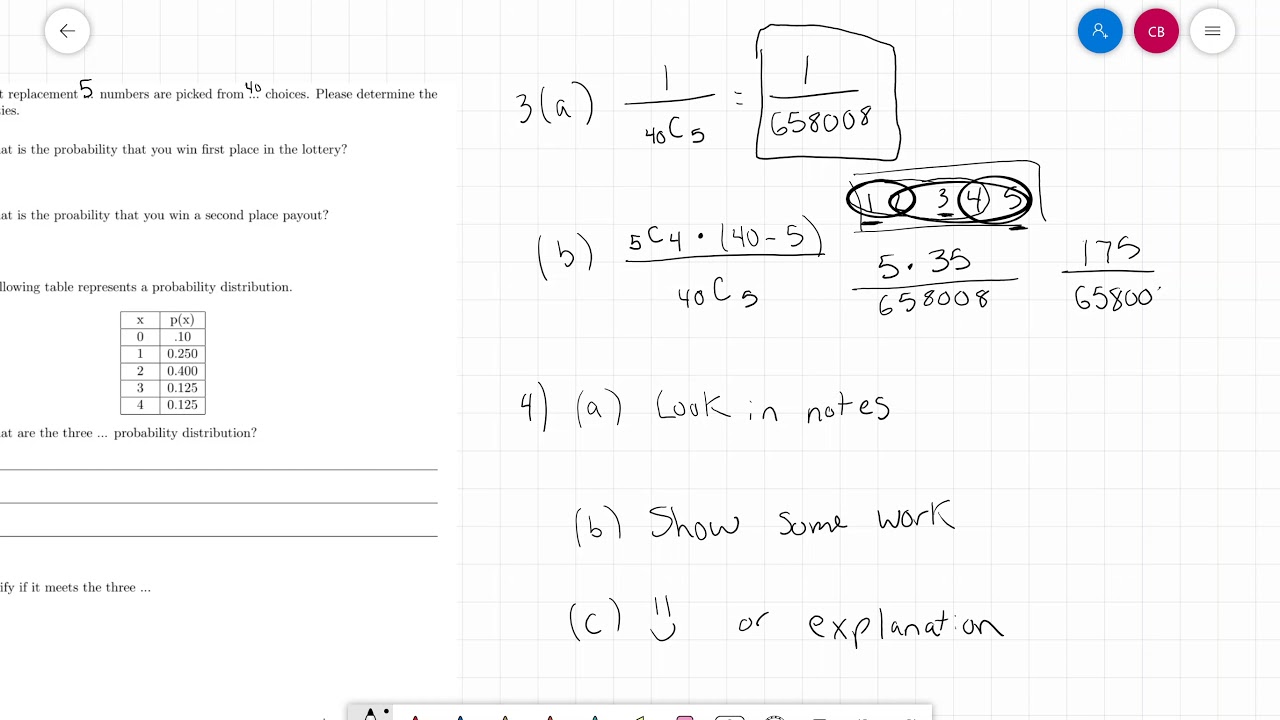 CB
t replacement 5 numbers are picked from 40 ... choices. Please determine the
ies.
at is the probability that you win first place in the lottery?
at is the proability that you win a second place payout?
llowing table represents a probability distribution.
x p(x)
0 .10
1 0.250
2 0.400
3 0.125
4 0.125
at are the three ... probability distribution?
ify if it meets the three ...
3(a) 1 / 40C5 = 1 / 658008
1 2 3 4 5
(b) 5C4 · (40 - 5) / 40C5 5 · 35 / 658008 175 / 65800
4) (a) Look in notes
(b) Show some work
(c) or explanation